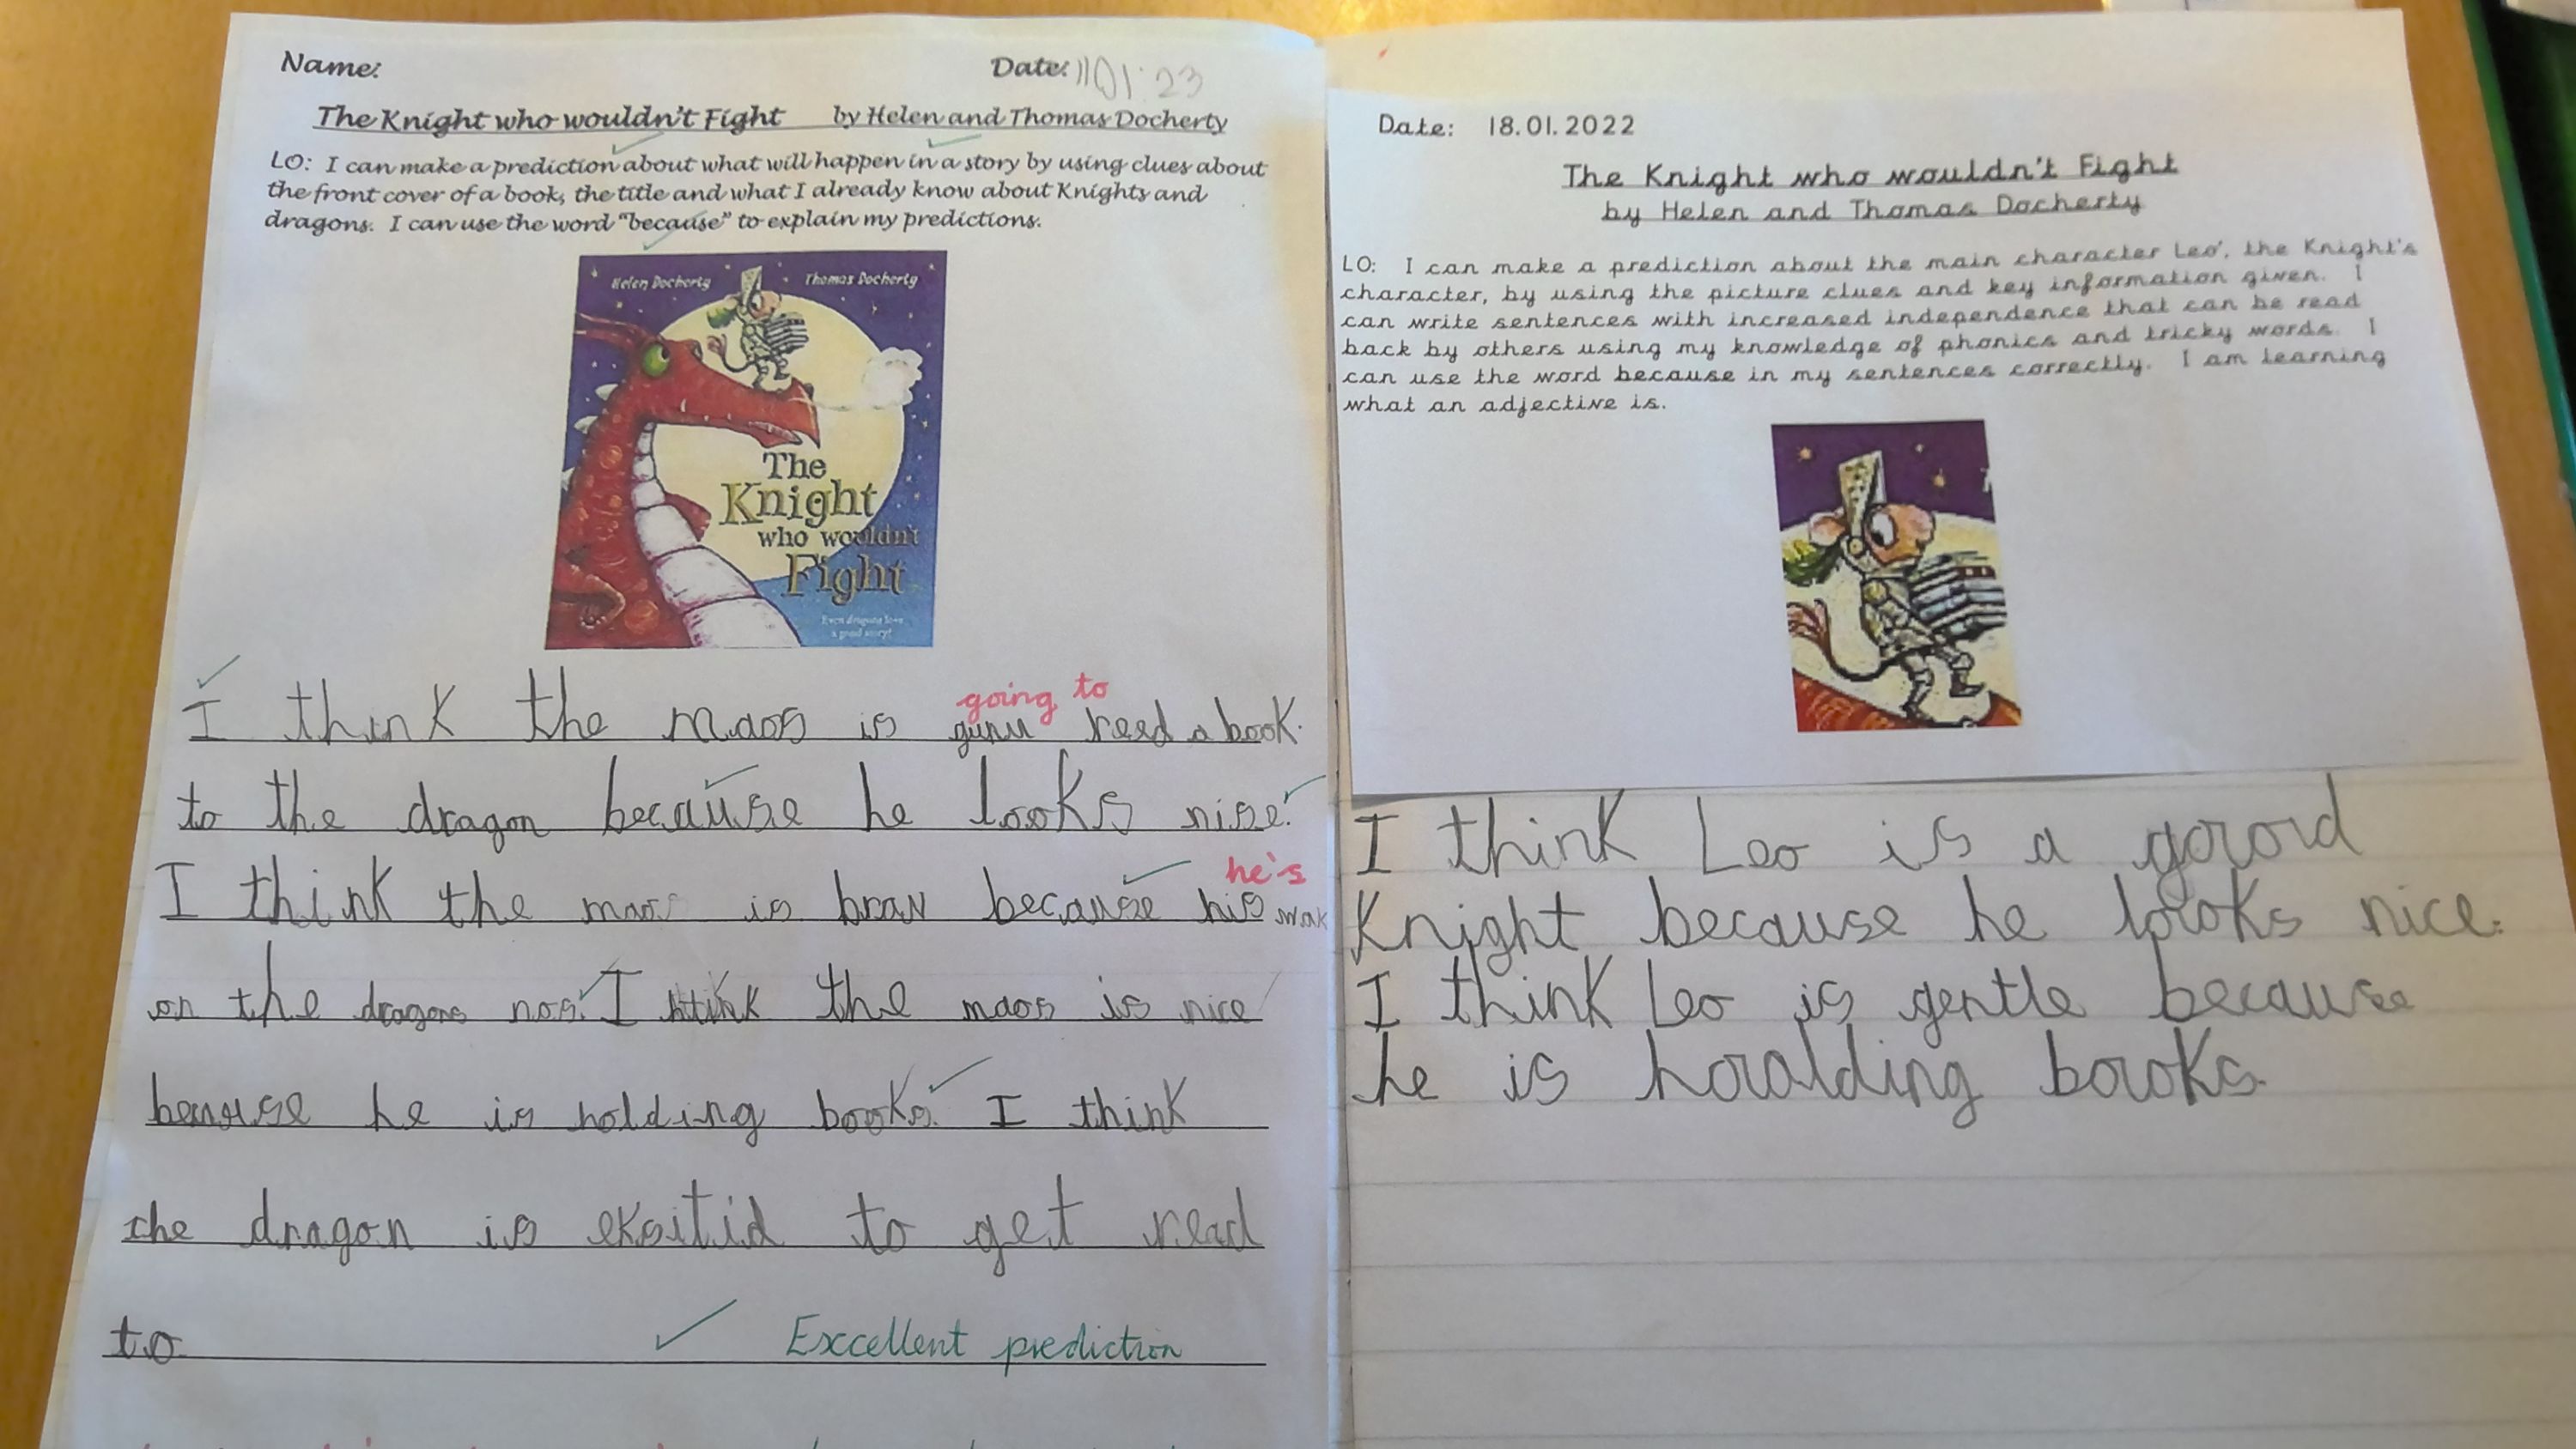 Name:
Date: 11 01 23
The Knight who wouldn't Fight by Helen and Thomas Docherty
LO: I can make a prediction about what will happen in a story by using clues about
the front cover of a book, the title and what I already know about Knights and
dragons. I can use the word "because" to explain my predictions.
Helen Docherty Thomas Docherty
The
Knight
who wouldn't
Fight
Even dragons love
a good story!
going to
I think the maos is gunu reed a book.
to the dragon because he looks nise.
he's
I think the maos is brav because his wok
on the dragons nos. I think the maos is nice
because he is holding books. I think
the dragon is eksitid to get read
to
Excellent prediction
Date: 18.01.2022
The Knight who wouldn't Fight
by Helen and Thomas Docherty
LO: I can make a prediction about the main character Leo', the Knight's
character, by using the picture clues and key information given. I
can write sentences with increased independence that can be read
back by others using my knowledge of phonics and tricky words. I
can use the word because in my sentences correctly. I am learning
what an adjective is.
I think Leo is a goood
Knight because he looks nice.
I think Leo is gentle because
he is hoalding books.